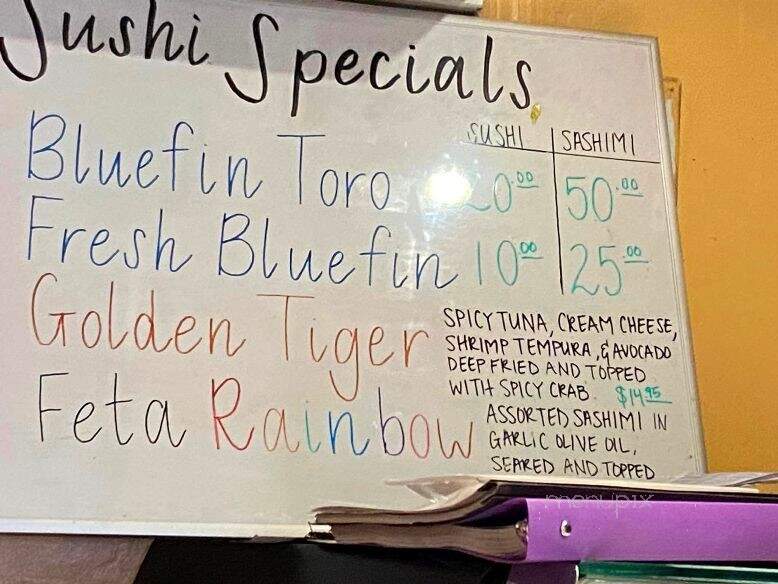 Sushi Specials
SUSHI SASHIMI
Bluefin Toro 20.00 50.00
Fresh Bluefin 10.00 25.00
Golden Tiger
SPICY TUNA, CREAM CHEESE,
SHRIMP TEMPURA, & AVOCADO
DEEP FRIED AND TOPPED
WITH SPICY CRAB. $14.95
Feta Rainbow
ASSORTED SASHIMI IN
GARLIC OLIVE OIL,
SEARED AND TOPPED
menupix